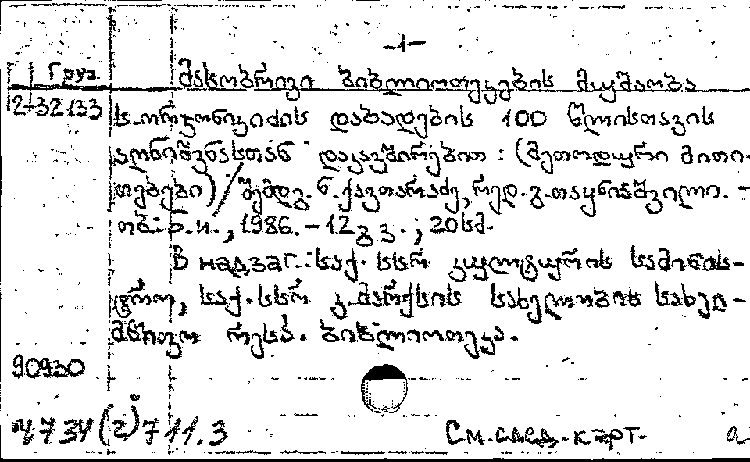 -1-
Груз მასობრივი ბიბლიოთეკების მუშაობა
2-32133 ს. ორჯონიკიძის დაბადების 100 წლისთავის
აღნიშვნასთან დაკავშირებით: (მეთოდური მითი-
თებები) / შემდგ. ნ. ქავთარაძე, რედ. გ. თაყნიაშვილი. -
თბ: ბ.ი., 1986. - 12 გვ.; 20 სმ.
В надзаг.: საქ. სსრ კულტურის სამინის-
ტრო, საქ. სსრ კ. მარქსის სახელობის სახელ-
მწიფო რესპ. ბიბლიოთეკა.
90930
Ч734(2)711.3 См. след. карт.